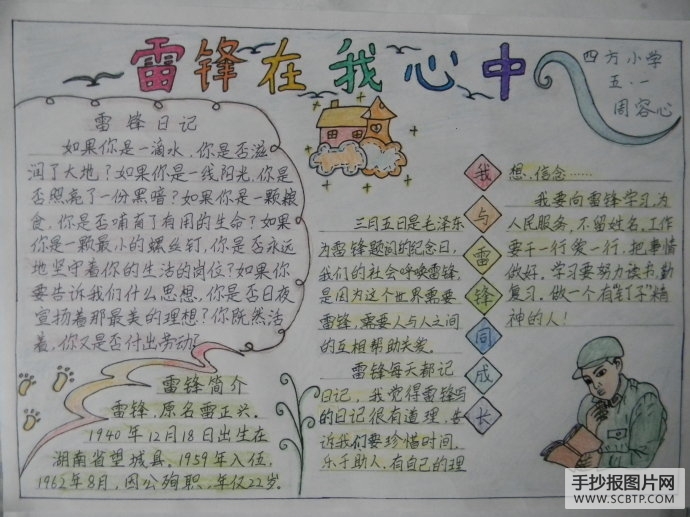 雷锋在我心中
四方小学
五·一
周容心
雷锋日记
如果你是一滴水，你是否滋
润了大地？如果你是一线阳光，你是
否照亮了一份黑暗？如果你是一颗粮
食，你是否哺育了有用的生命？如果
你是一颗最小的螺丝钉，你是否永远
地坚守着你的生活的岗位？如果你
要告诉我们什么思想，你是否日夜
宣扬着那最美的理想？你既然活
着，你又是否付出劳动？
雷锋简介
雷锋，原名雷正兴。
1940年12月18日出生在
湖南省望城县，1959年入伍，
1962年8月，因公殉职，年仅22岁。
三月五日是毛泽东
为雷锋题词的纪念日，
我们的社会呼唤雷锋，
是因为这个世界需要
雷锋，需要人与人之间
的互相帮助关爱。
雷锋每天都记
日记，我觉得雷锋写
的日记很有道理，告
诉我们要珍惜时间，
乐于助人，有自己的理
我与雷锋同成长
想、信念……
我要向雷锋学习，为
人民服务，不留姓名，工作
要干一行爱一行，把事情
做好。学习要努力读书，勤
复习。做一个有“钉子”精
神的人！
手抄报图片网
www.SCBTP.com